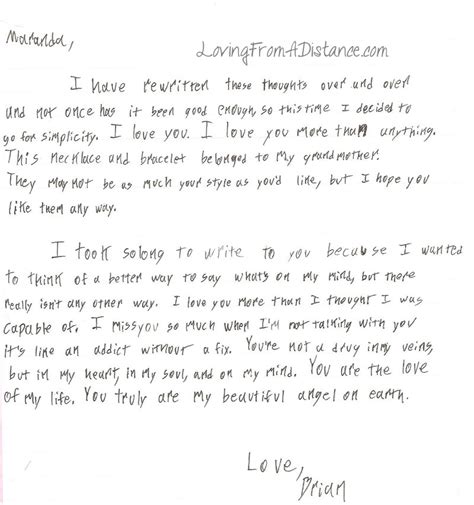 Maranda,
LovingFromADistance.com
I have rewritten these thoughts over and over
and not once has it been good enough, so this time I decided to
go for simplicity. I love you. I love you more than anything.
This necklace and bracelet belonged to my grandmother.
They may not be as much your style as you'd like, but I hope you
like them any way.
I took so long to write to you because I wanted
to think of a better way to say whats on my mind, but there
really isn't any other way. I love you more than I thought I was
capable of. I miss you so much when I'm not talking with you
it's like an addict without a fix. You're not a drug in my veins,
but in my heart, in my soul, and on my mind. You are the love
of my life. You truly are my beautiful angel on earth.
Love,
Brian